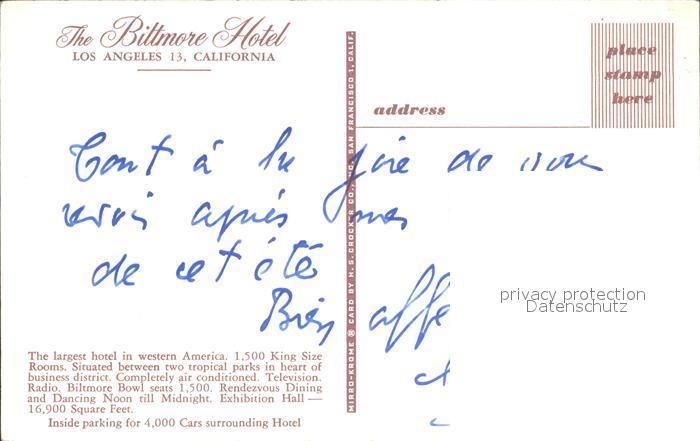 The Biltmore Hotel
LOS ANGELES 13, CALIFORNIA
place
stamp
here
address
Tout à la joie de vous
revoir après mes
de cet été
Bien affe
MIRRO-KROME ® CARD BY H. S. CROCKER CO., INC. SAN FRANCISCO 1, CALIF.
privacy protection
Datenschutz
The largest hotel in western America. 1,500 King Size
Rooms. Situated between two tropical parks in heart of
business district. Completely air conditioned. Television.
Radio. Biltmore Bowl seats 1,500. Rendezvous Dining
and Dancing Noon till Midnight. Exhibition Hall —
16,900 Square Feet.
Inside parking for 4,000 Cars surrounding Hotel